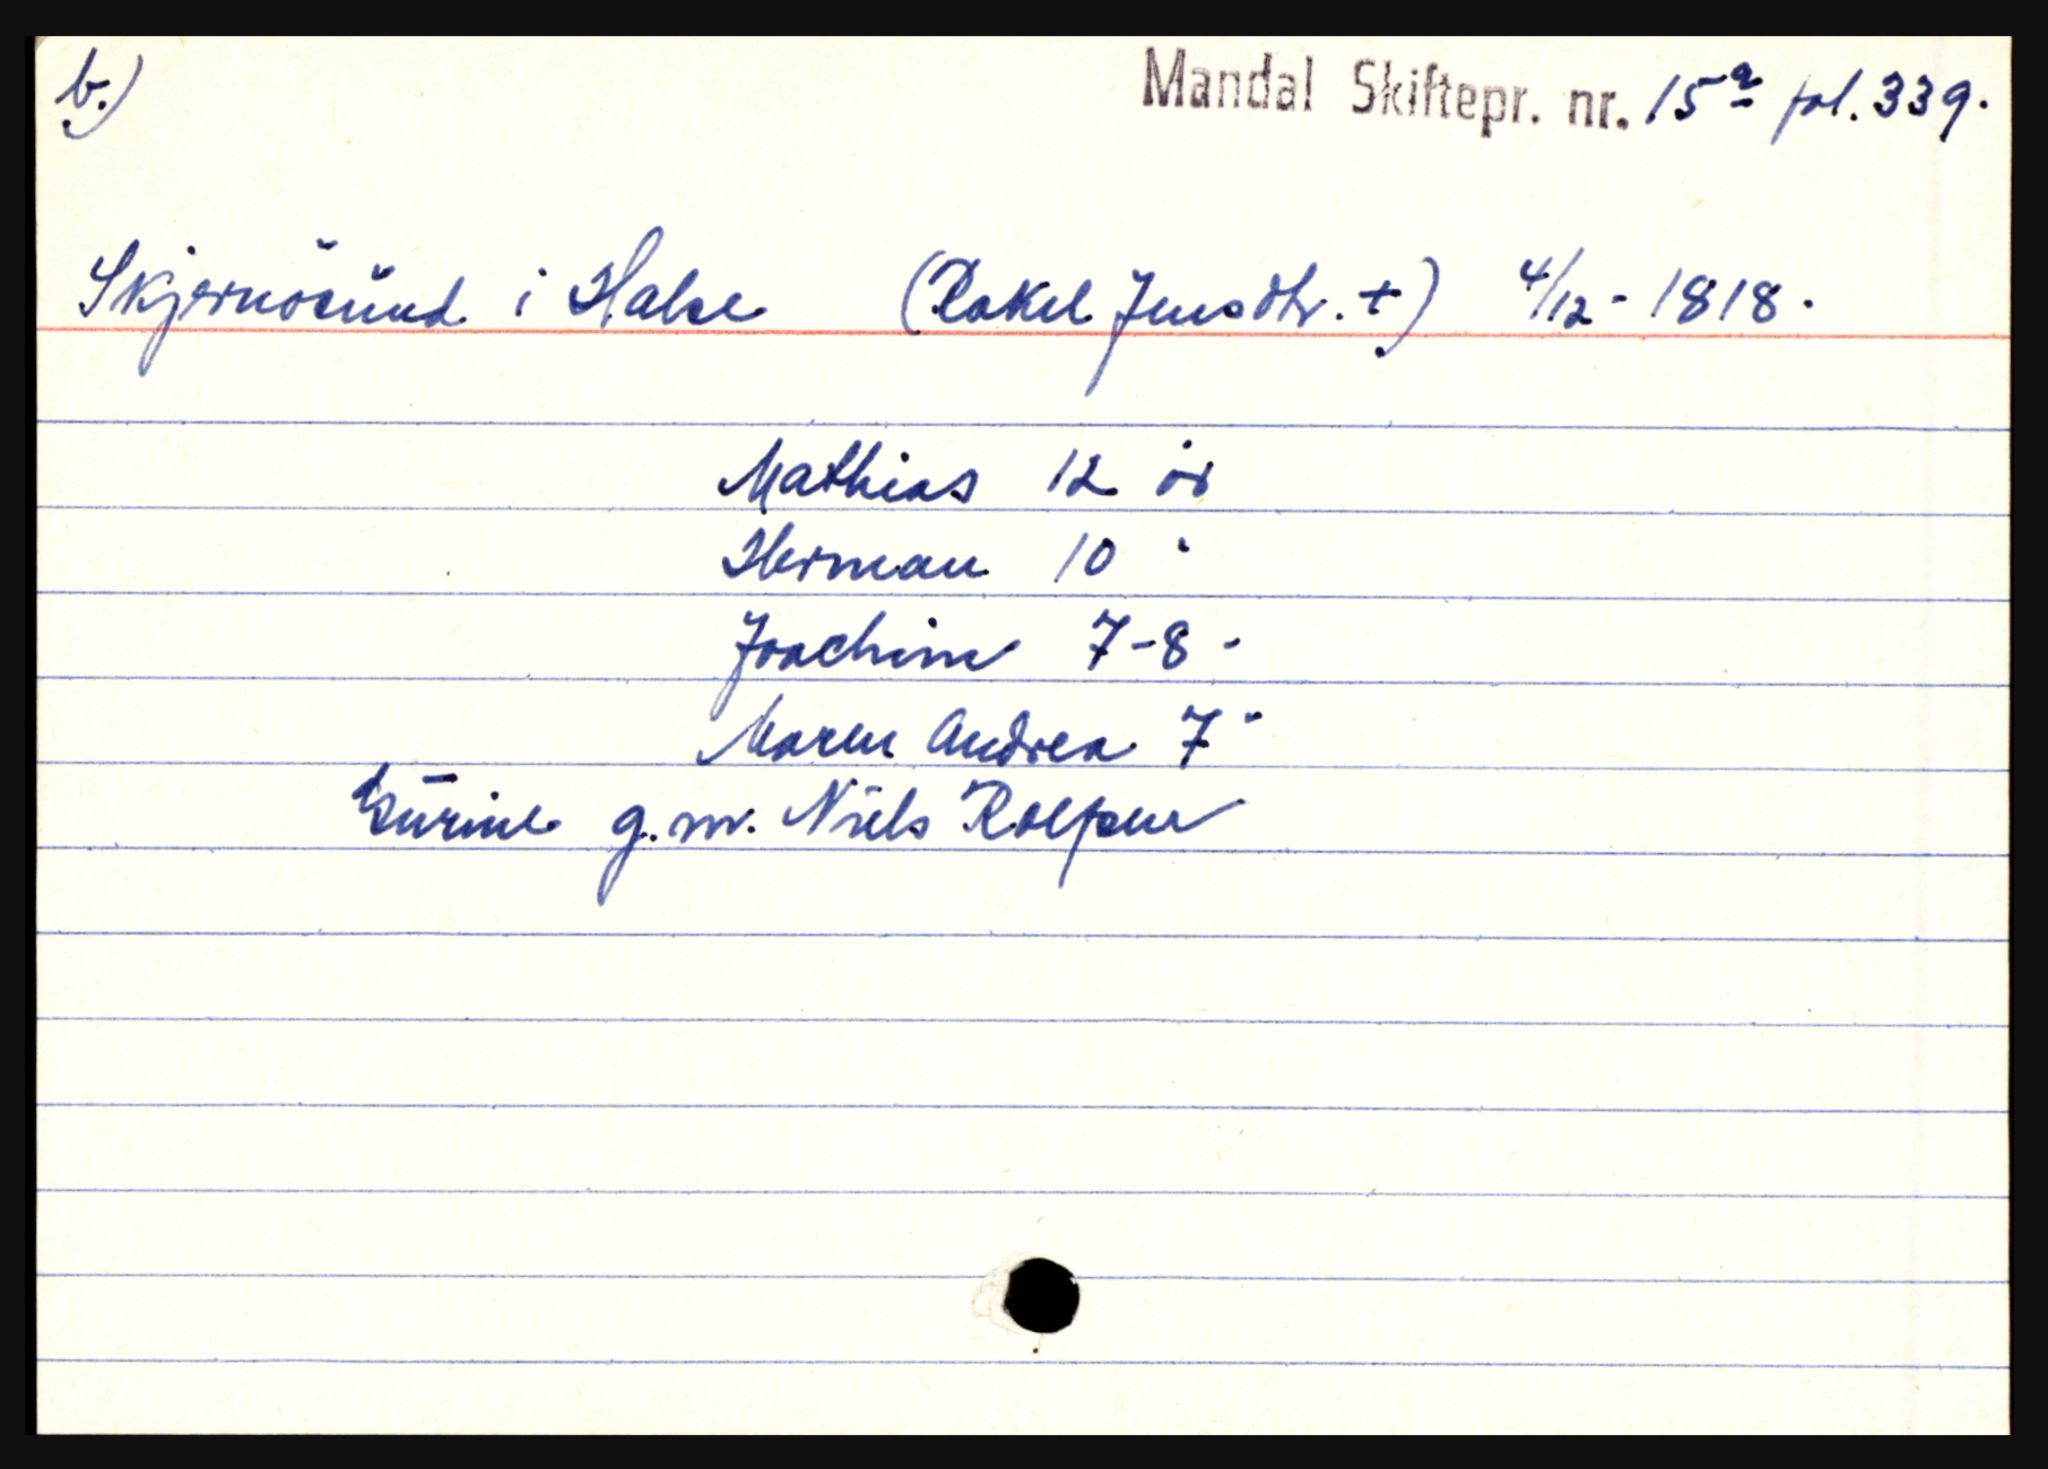 b.) Mandal Skiftepr. nr. 15a fol. 339.
Skjernösund i Halse (Rakel Jensdtr. +) 4/12 - 1818.
Mathias 12 år
Herman 10 "
Joachim 7-8 -
Maren Andrea 7 "
Gurine g.m. Niels Rolfsen